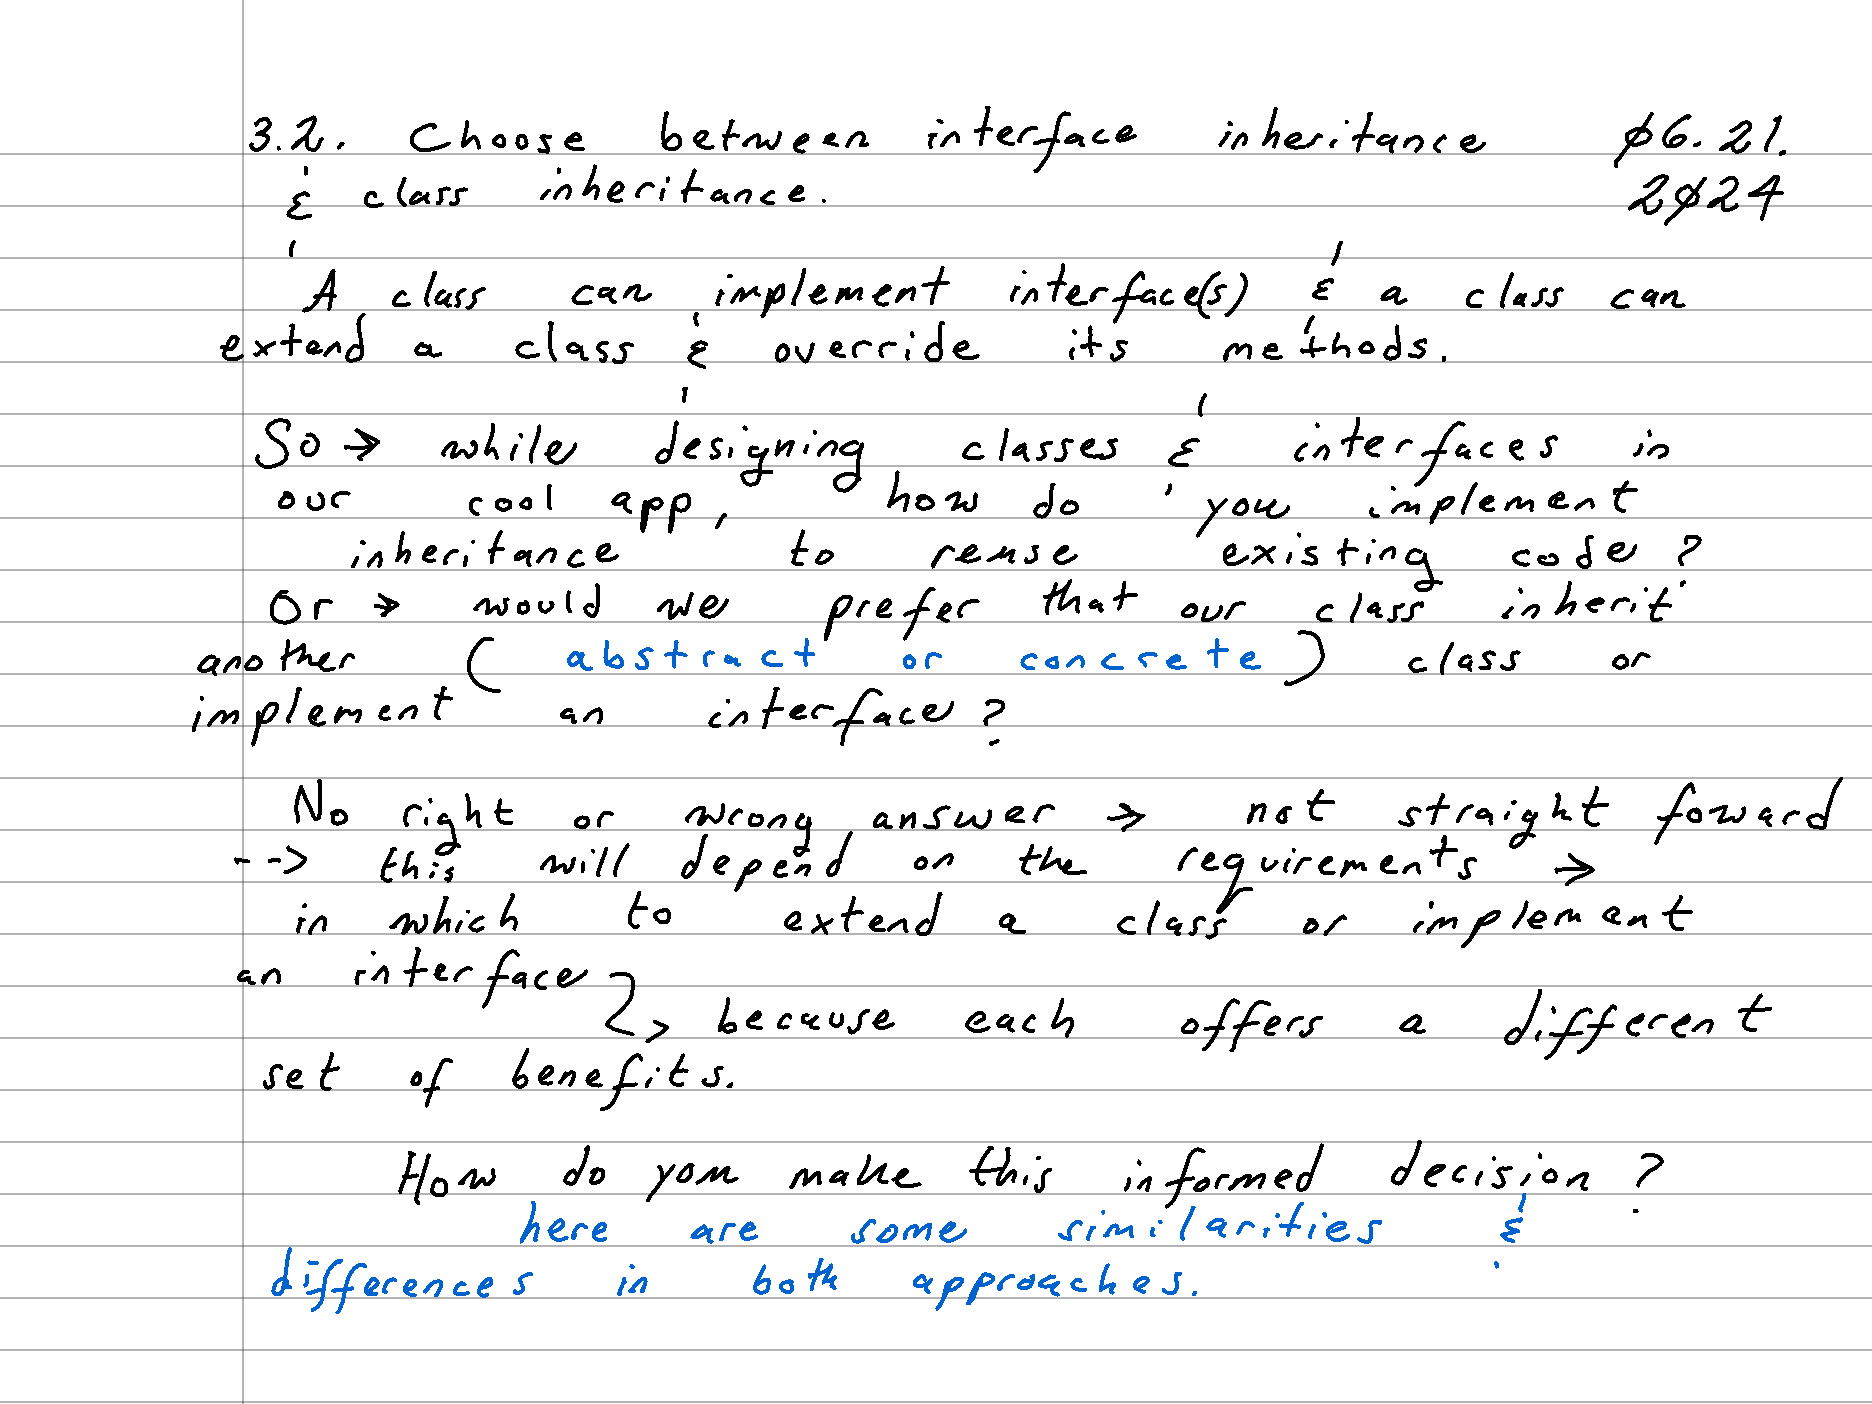 3.2. Choose between interface inheritance Ø6.21.
& class inheritance. 2Ø24
A class can implement interface(s) & a class can
extend a class & override its methods.
So → while designing classes & interfaces in
our cool app, how do you implement
inheritance to reuse existing code?
Or → would we prefer that our class inherit
another (abstract or concrete) class or
implement an interface?
No right or wrong answer → not straight foward
--> this will depend on the requirements →
in which to extend a class or implement
an interface
↳ because each offers a different
set of benefits.
How do you make this informed decision?
here are some similarities &
differences in both approaches.